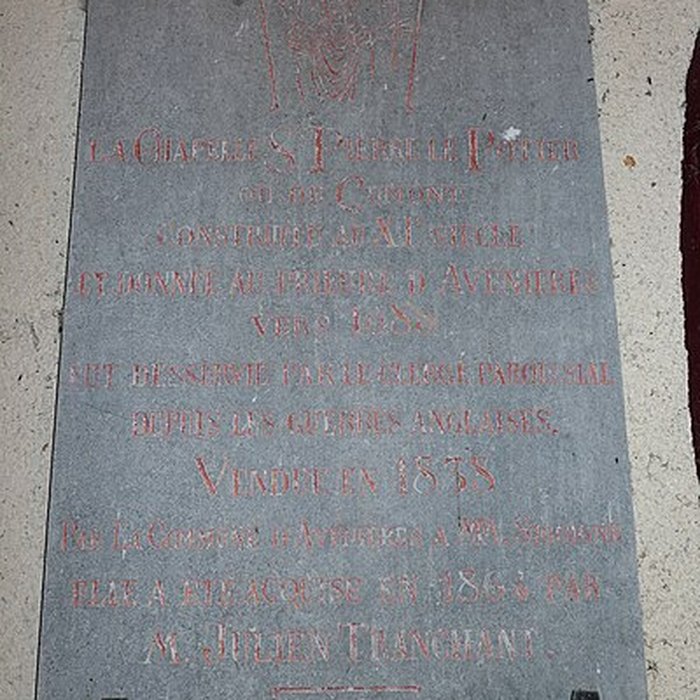 LA CHAPELLE S. PIERRE LE POTIER
OU DU
CONSTRUITE AU XIE SIECLE
ET DONNÉE AU PRIEURÉ D'AVÉNIÈRES
VERS 1088
FUT DESSERVIE PAR LE CLERGÉ PAROISSIAL
DEPUIS LES GUERRES ANGLAISES.
VENDUE EN 1838
PAR LA COMMUNE D'AVÉNIÈRES A MM.
ELLE A ÉTÉ ACQUISE EN 1864 PAR
M. JULIEN TRANCHANT.